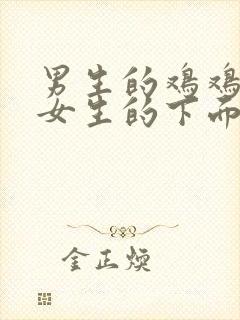 男生的鸡鸡
女生的下面
金正焕